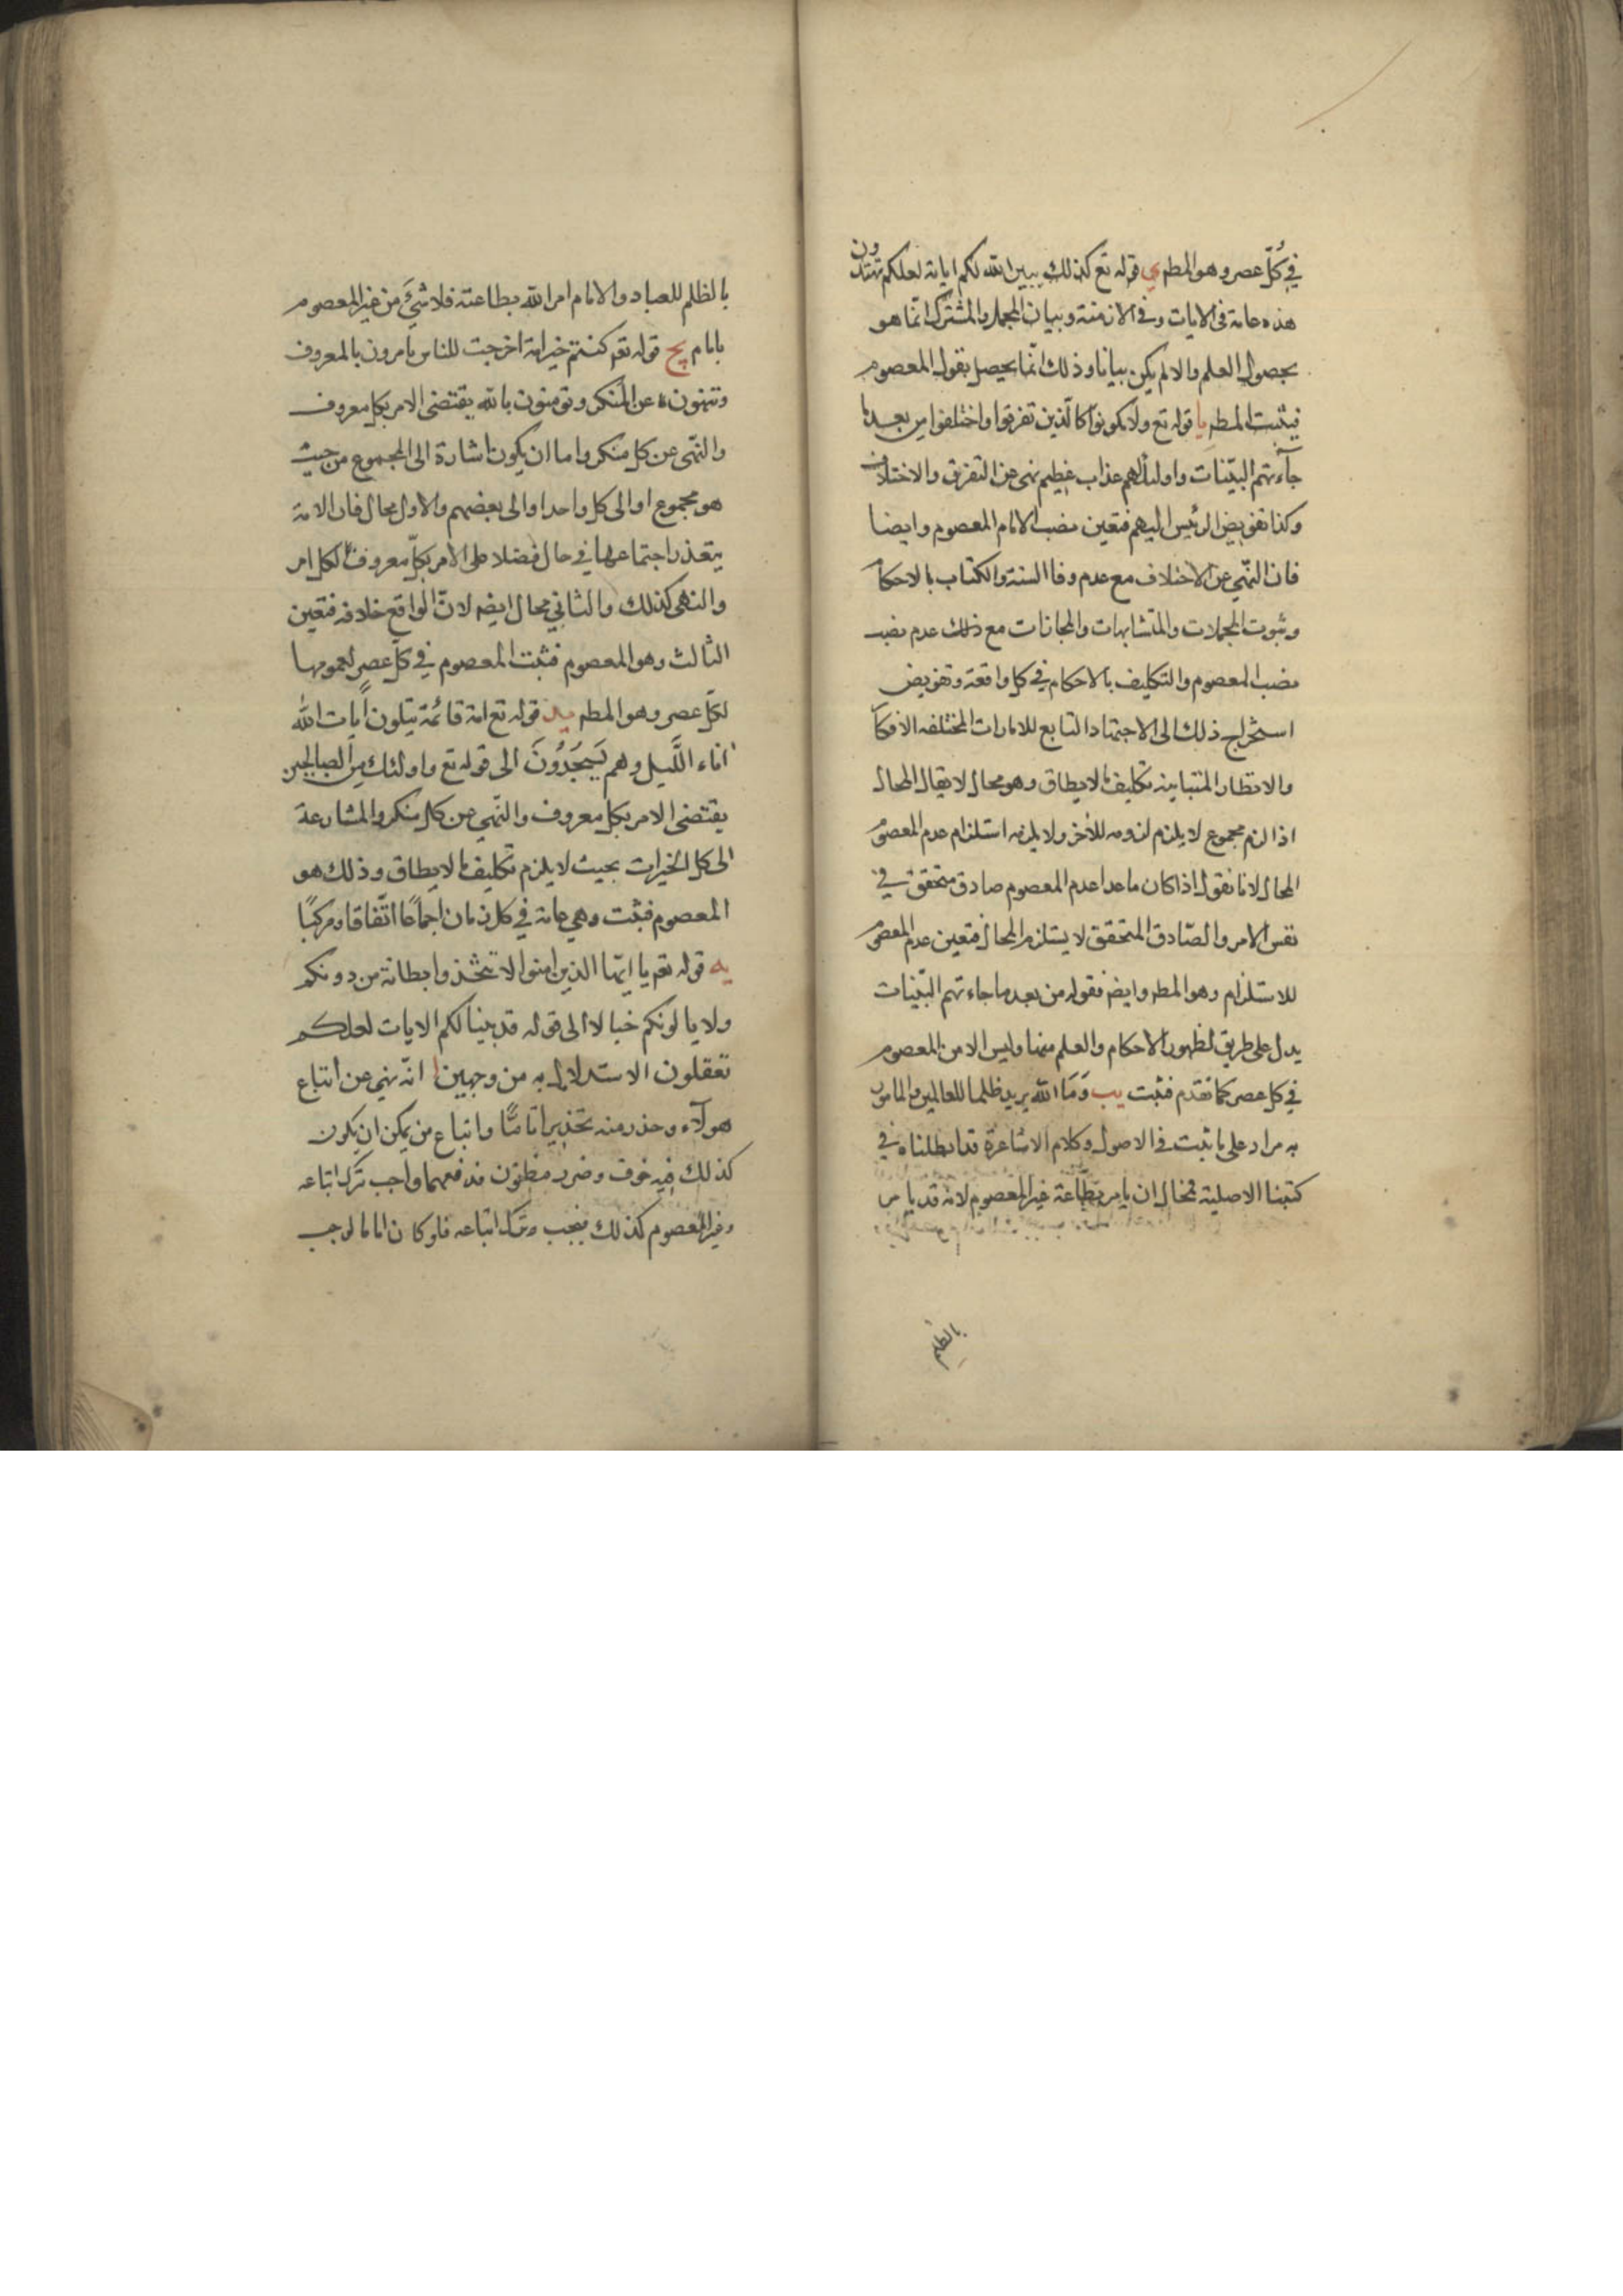 في كلّ عصر وهو المطم ي قوله تع كذلك يبين الله لكم اياته لعلكم تهتدون
هذه عامة في الايات وفي الازمنة وبيان المجمل والمشترك انّما هو
بحصول العلم والا لم يكن بيانا وذلك انّما يحصل بقول المعصوم
فيثبت المطم يا قوله تع ولا تكونوا كالّذين تفرقوا واختلفوا من بعد ما
جآءتهم البيّنات واولئك لهم عذاب عظيم نهى عن التفرق والاختلاف
وكذا تفويض الرئيس اليهم فتعين نصب الامام المعصوم وايضا
فان النّهي عن الاختلاف مع عدم وفا السنة والكتاب بالاحكام
وثبوت المجملات والمتشابهات والمجازات مع ذلك عدم نصب
نصب المعصوم والتكليف بالاحكام في كل واقعة وتفويض
استخراج ذلك الى الاجتهاد التابع للامارات المختلفه الافكا
والانظار المتباينه تكليف ما لا يطاق وهو محال لا يقال المحال
اذا لزم مجموع لا يلزم لزومه للأخر ولا يلزمه استلزام عدم المعصوم
المحال لانا نقول اذا كان ما عدا عدم المعصوم صادق متحقق في
نفس الامر والصّادق المتحقق لا يستلزم المحال فتعين عدم المعصوم
للاستلزام وهو المطم وايضم فقوله من بعد ما جاءتهم البيّنات
يدل على طريق لظهور الاحكام والعلم منها وليس الا من المعصوم
في كل عصر كما تقدم فثبت يب وَمَا الله يريد ظلما للعالمين والمامور
به مراد على ما ثبت في الاصول وكلام الاشاعرة قد ابطلناه في
كتبنا الاصلية فمحال ان يامر بطاعة غير المعصوم لانه قد يامر
بالظلم
بالظلم للعباد والامام امر الله بطاعته فلا شيَ من غير المعصوم
بامام يج قوله تعم كنتم خير امة اخرجت للناس تامرون بالمعروف
وتنهون عن المنكر وتومنون بالله يقتضى الامر بكل معروف
والنّهى عن كل منكر واما ان يكون اشارة الى المجموع من حيث
هو مجموع او الى كل واحد او الى بعضهم والاول محال فان الامة
يتعذر اجتماعها في حال فضلا على الامر بكلّ معروف لكل امر
والنهى كذلك والثاني محال ايضم لانّ الواقع خلافه فتعين
الثالث وهو المعصوم فثبت المعصوم في كلّ عصر لعمومها
لكلّ عصر وهو المطم يد قوله تع امة قائمة يتلون ايات الله
اناء اللّيل وهم يَسجُدُونَ الى قوله تع واولئك من الصالحين
يقتضى الامر بكل معروف والنّهى عن كل منكر والمشارعة
الى كل الخيرات بحيث لا يلزم تكليف ما لا يطاق وذلك هو
المعصوم فثبت وهي عامة في كل زمان اجماعًا اتّفاقا ومركبًا
يه قوله تعم يا ايّها الذين امنوا لا تتخذوا بطانة من دونكم
ولا يالونكم خبالا الى قوله قد بينا لكم الايات لعلكم
تعقلون الاستدلال به من وجهين ا انّه نهي عن اتباع
هولآء وحذر منه تحذيرا تامّا واتباع من يمكن ان يكون
كذلك فيه خوف وضرر مظنون فدفعهما واجب بترك اتباعه
وغير المعصوم كذلك فيجب ترك اتباعه فلو كان اماما لوجب